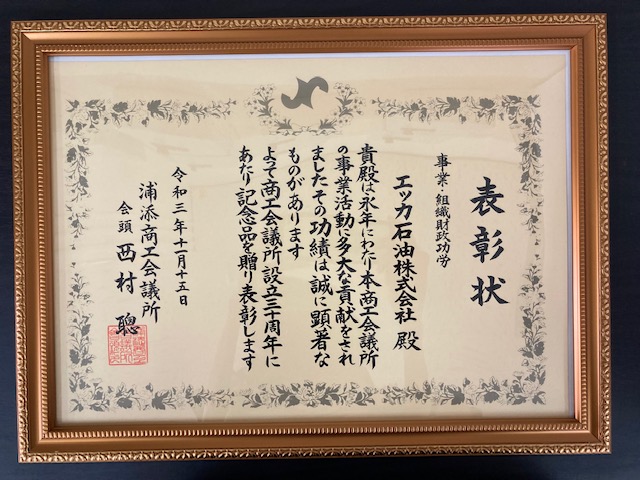 表彰状
事業・組織財政功労
エッカ石油株式会社 殿
貴殿は永年にわたり本商工会議所
の事業活動に多大な貢献をされ
ましたその功績は誠に顕著な
ものがあります
よって商工会議所設立三十周年に
あたり記念品を贈り表彰します
令和三年十一月十五日
浦添商工会議所
会頭 西村 聰